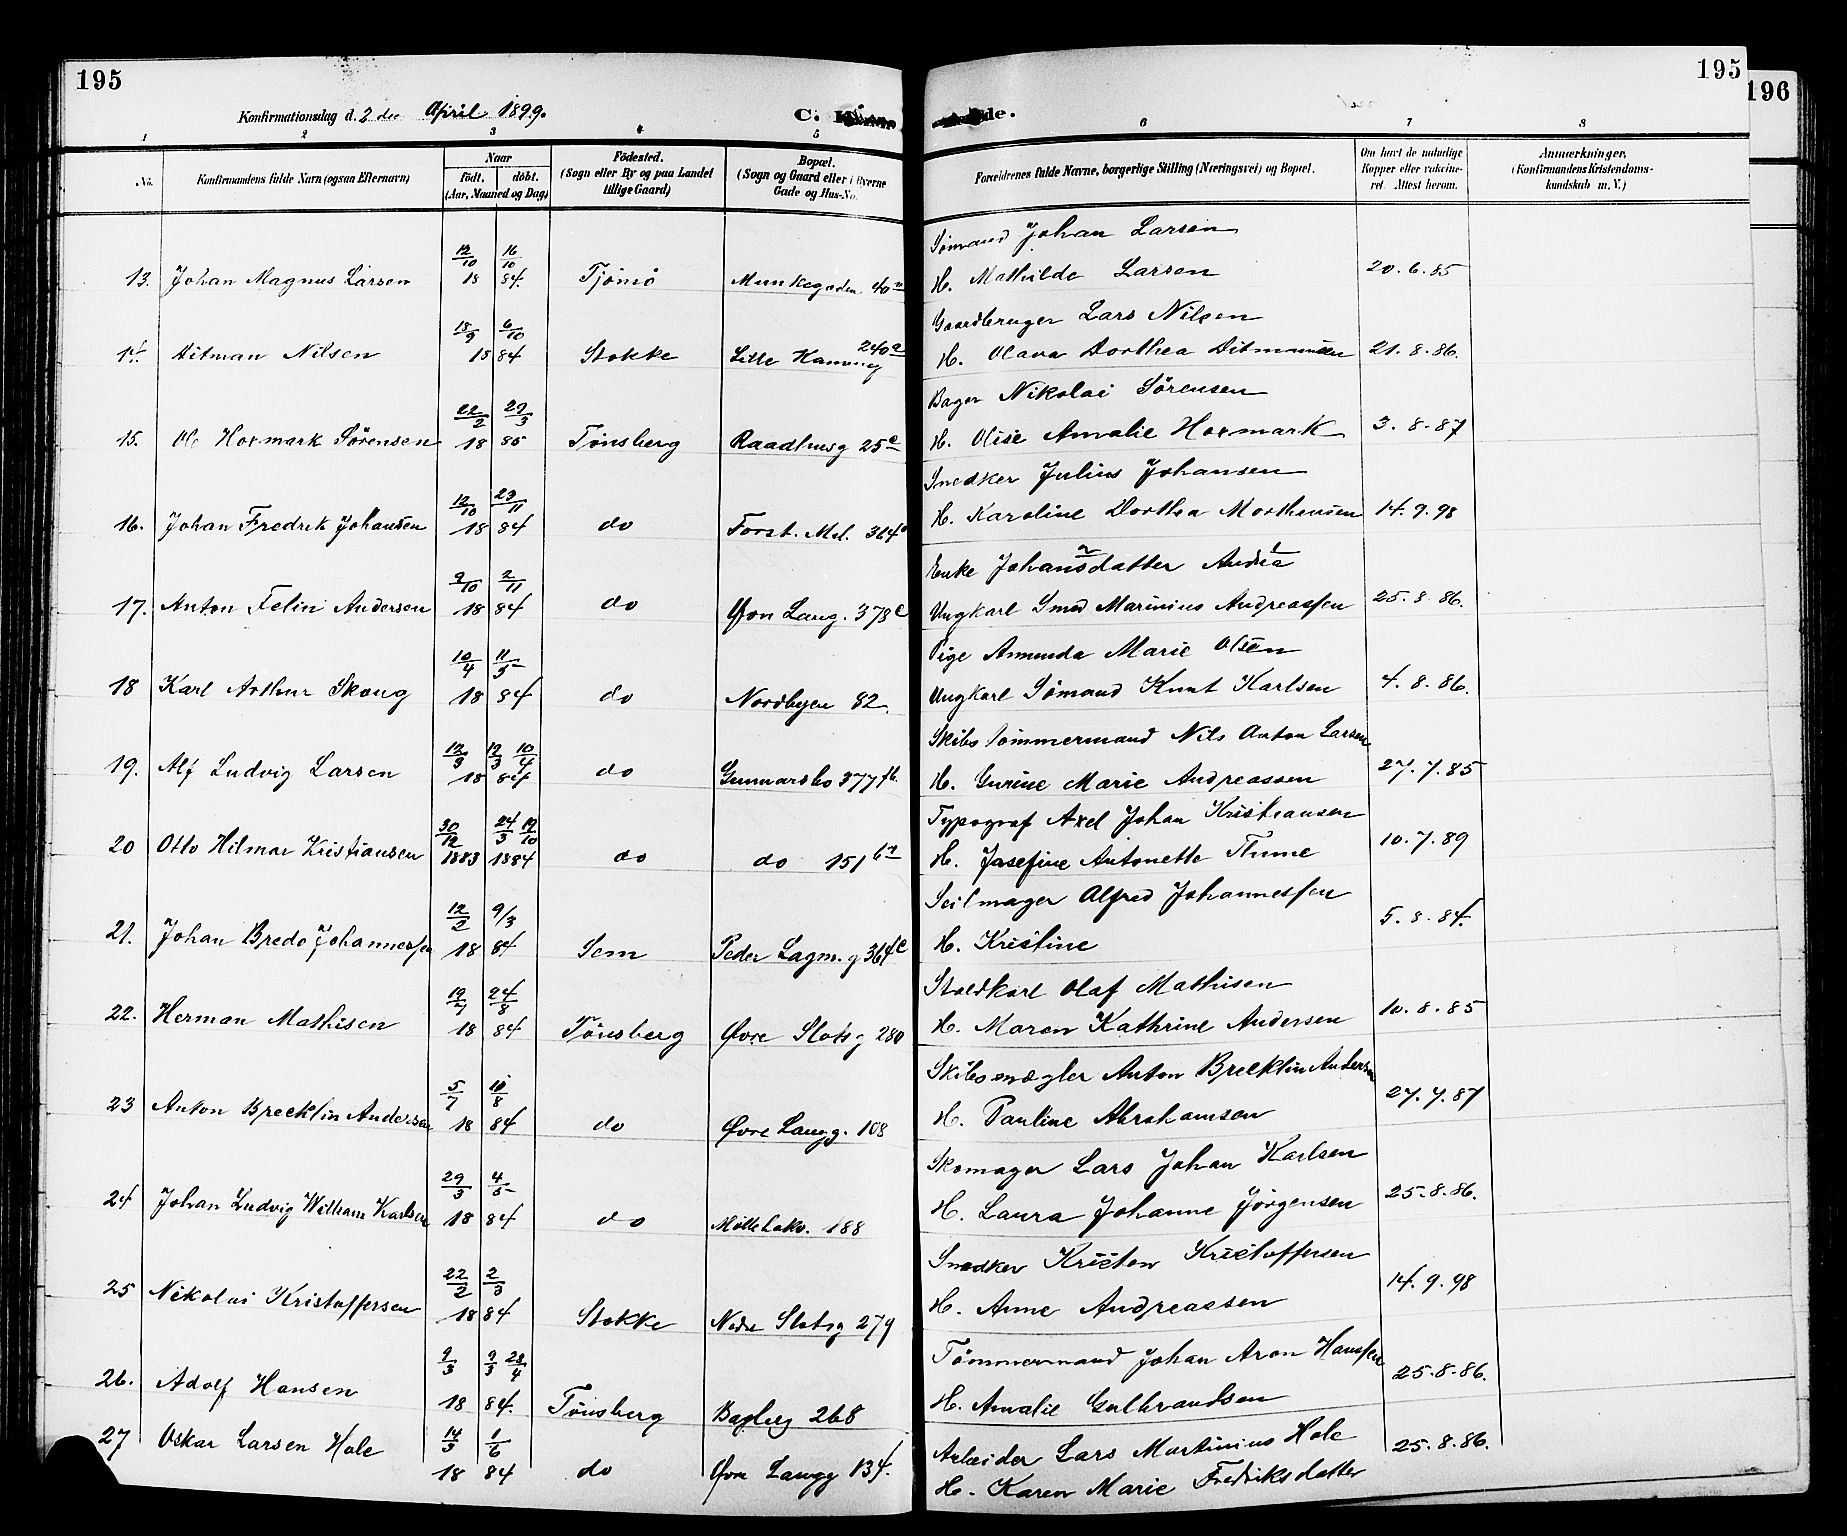 195 195 196
Konfirmationsdag d. 2 den April 1899. C. de.
1 2 3 4 5 6 7 8
No. Konfirmandens fulde Navn (ogsaa Efternavn) Naar födt. döbt. (Aar, Maaned og Dag) Födested. (Sogn eller By og paa Landet tillige Gaard) Bopæl. (Sogn og Gaard eller i Byerne Gade og Hus-No. Forældrenes fulde Navne, borgerlige Stilling (Næringsvei) og Bopæl. Om havt de naturlige Kopper eller vaksineret. Attest herom. Anmærkninger, (Konfirmandens Kristendomskundskab m. V.)
Sömand Johan Larsen
13. Johan Magnus Larsen 12/10 16/10 18 84. Tjömö Munkegaden 40 H. Mathilde Larsen 20.6.85
Gaardbruger Lars Nilsen
14. Ditman Nilsen 18/9 6/10 18 84 Stokke Lille 240a H. Olava Dorthea Ditmansen 21.8.86.
Bager Nikolai Sörensen
15. Ole Hoxmark Sörensen 22/2 29/3 18 85 Tönsberg Raadhusg 25 H. Olise Amalie Hoxmark 3.8.87
Snedker Julius Johansen
16. Johan Fredrik Johansen 12/10 23/11 18 84 do Forst. Mel. 364 H. Karoline Dorthea Morthensen 14.9.98
Enke Johansdatter Andrea
17. Anton Felin Andersen 9/10 2/11 18 84 do Øvre Lang. 378c Ungkarl Smed Marinius Andreassen 25.8.86.
Pige Amunda Marie Olsen
18 Karl Arthur Skoug 10/4 11/5 18 84 do Nordbyen 82. Ungkarl Sömand Knut Karlsen 4.8.86.
Skibstömmermand Nils Anton Larsen
19. Alf Ludvig Larsen 12/3 12/3 10/4 18 84 do Gunnarsbo 377 H. Gurine Marie Andreassen 27.7.85
Typograf Axel Johan Kristiansen
20 Otto Hilmar Kristiansen 30/12 24/3 12/10 1883 1884 do do 151 H. Josefine Antonette Thime 10.7.89
Seilmager Alfred Johannessen
21. Johan Brede Johannessen 12/2 9/3 18 84 Sem Peder Lagm.g 364c H. Kristine 5.8.84.
Staldkarl Olaf Mathisen
22. Herman Mathisen 19/7 24/8 18 84 Tönsberg Øvre Slotsg 280 H. Maren Kathrine Andersen 10.8.85
Skibsmægler Anton Brecklin Andersen
23 Anton Brecklin Andersen 5/7 10/8 18 84 do Øvre Langg. 108 H. Pauline Abrahamsen 27.7.87
Skomager Lars Johan Karlsen
24 Johan Ludvig William Karlsen 29/3 4/5 18 84 do Möllebak. 188 H. Laura Johanne Jörgensen 25.8.86.
Snedker Kristen Kristoffersen
25 Nikolai Kristoffersen 22/2 2/3 18 84 Stokke Nedre Slotsg 279 H. Anne Andreassen 14.9.98
Tömmermand Johan Aron Hanssen
26. Adolf Hansen 9/3 9/3 28/4 18 84. Tönsberg Bagberg 268 H. Amalie Gulbrandsen 25.8.86.
27 Oskar Larsen Hole 14/3 1/6 18 84 do Øvre Langg 134. Arbeider Lars Martinius Hole 25.8.86.
H. Karen Marie Fredriksdatter